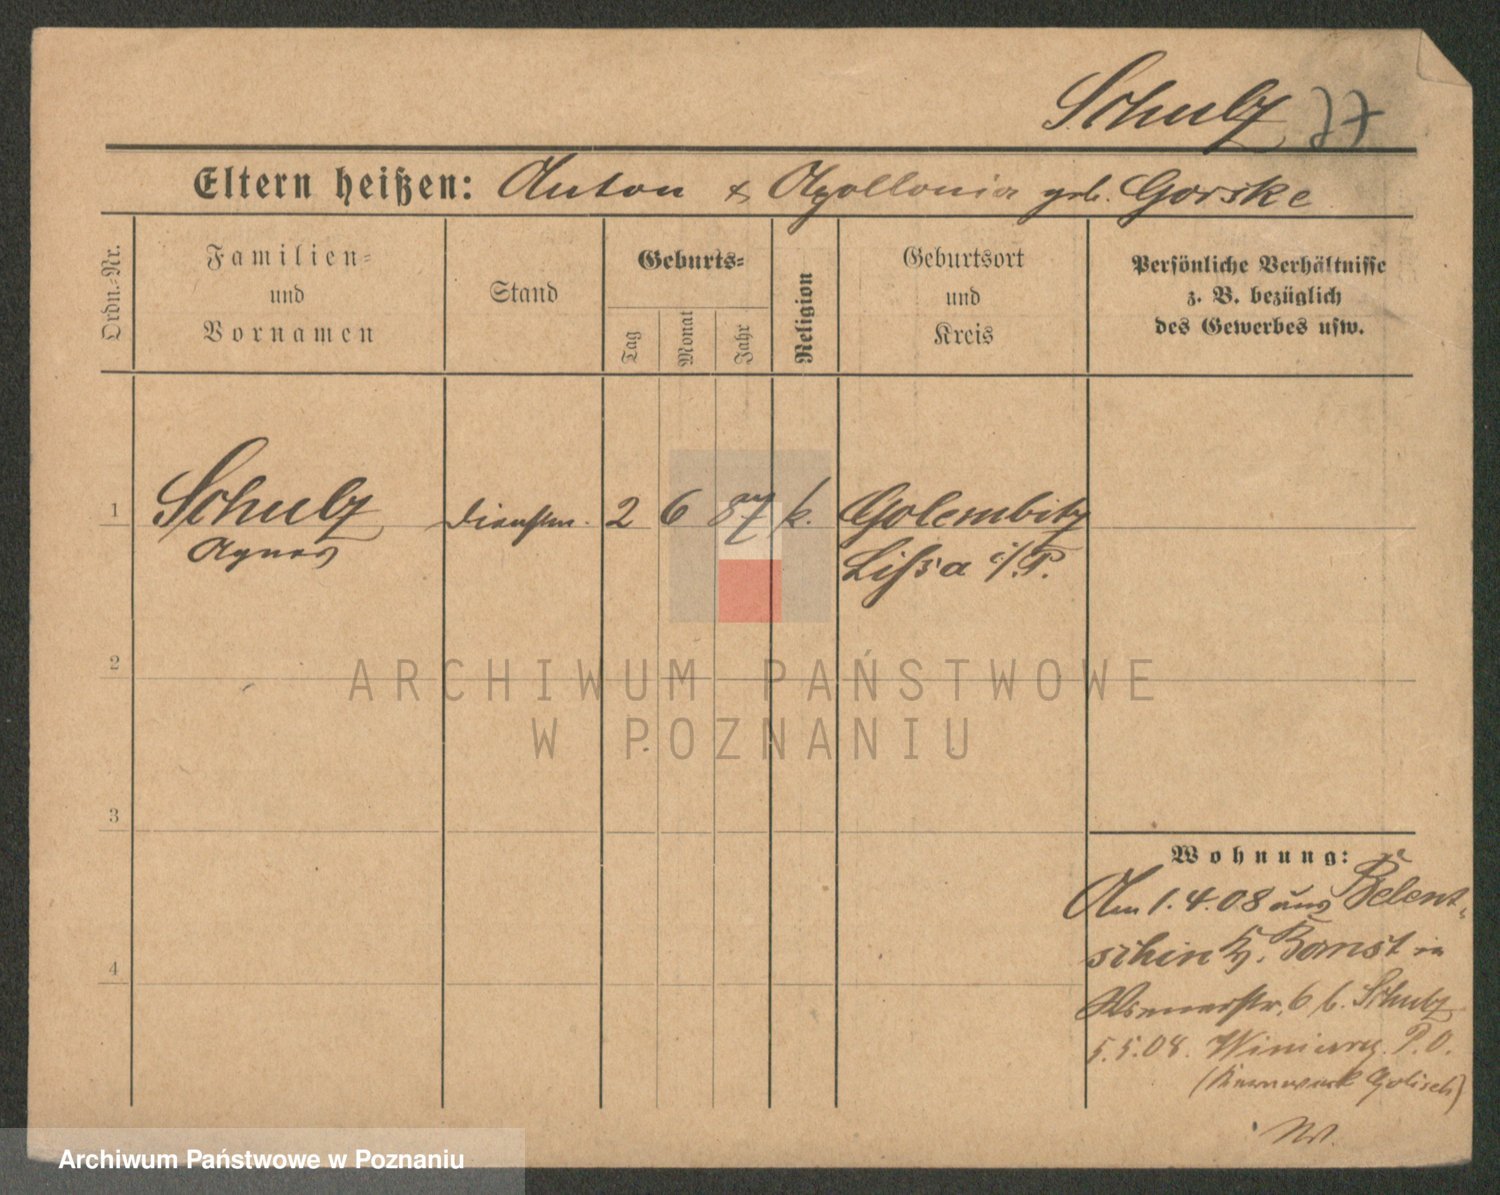 Schulz 77
Eltern heißen: Anton & Apollonia geb. Gorske
Ordn.-Nr.
Familien-
und
Vornamen
Stand
Geburts-
Tag
Monat
Jahr
Religion
Geburtsort
und
Kreis
Persönliche Verhältnisse
z. B. bezüglich
des Gewerbes usw.
1 Schulz Dienstm. 2 6 87 k. Golembitz
Agnes Lissa i/P.
2
ARCHIWUM PAŃSTWOWE
W POZNANIU
3
Wohnung:
Am 1.4.08 aus Belent-
schin Kr. Bomst in
6 b. Schulz
5.5.08. Winiary P.O.
4
Archiwum Państwowe w Poznaniu